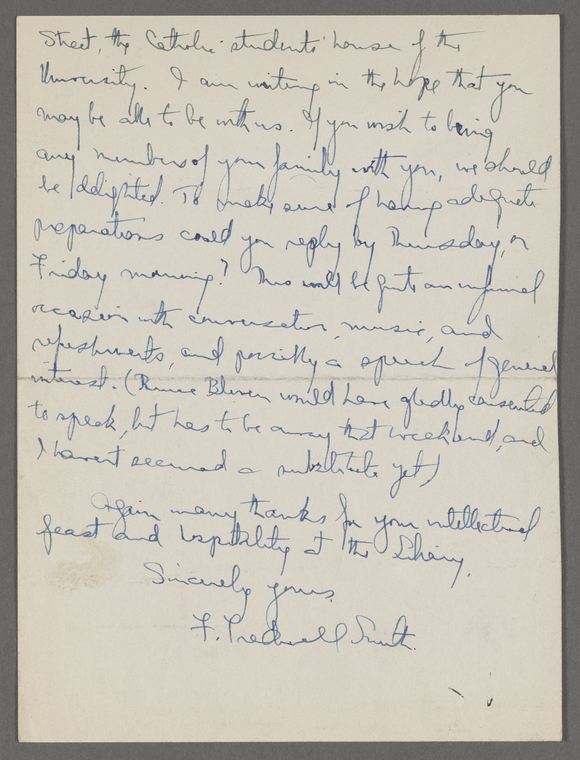 Street, the Catholic students' house of the
University. I am writing in the hope that you
may be able to be with us. If you wish to bring
any members of your family with you, we should
be delighted. To make sure of having adequate
preparations could you reply by Thursday, or
Friday morning? This will be quite an informal
occasion with conversation, music, and
refreshments, and possibly a speech of general
interest. (Bruce Bliven would have gladly consented
to speak, but has to be away that weekend, and
I haven't secured a substitute yet)
Again many thanks for your intellectual
feast and hospitality at the Library.
Sincerely yours,
F. Tredwell Smith.